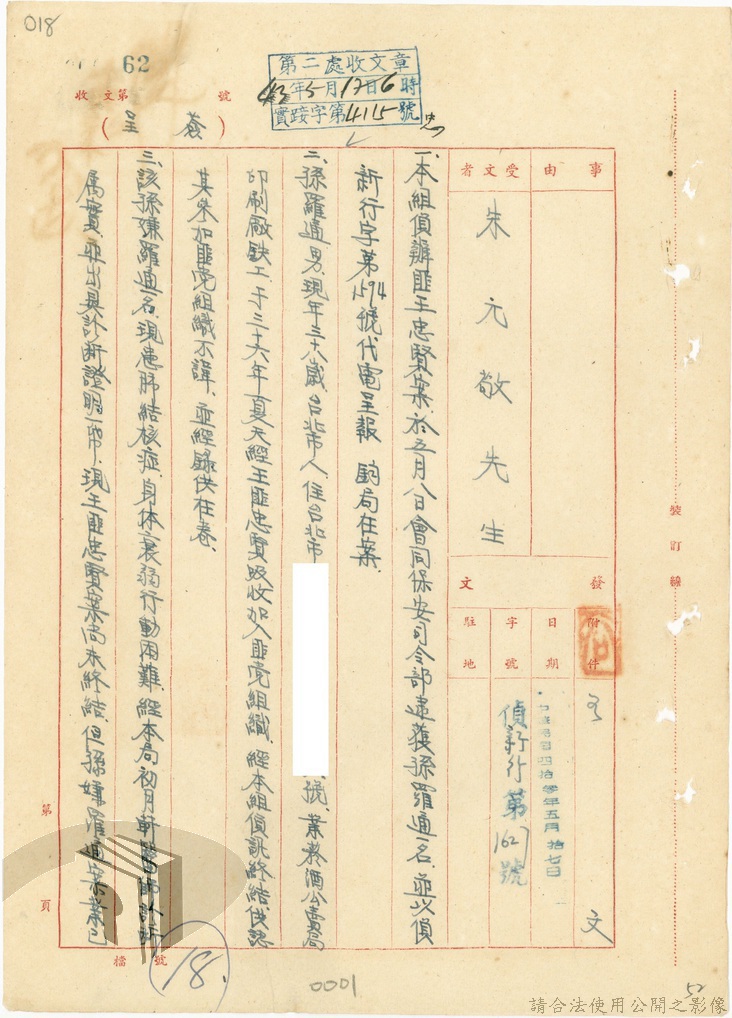 018
62
收文第 號
第二處收文章
43年5月17日6時
實踐字第4115號
(簽 呈)
事由
受文者
朱元敬先生
發文
附件
日期
字號
駐地
中華民國四拾參年五月拾七日
偵新行第1627號
文
一、本組偵辦匪王忠賢案、於五月八日會同保安司令部逮獲孫羅通名、並以偵
新行字第1594號代電呈報 鈞局在案、
二、孫羅通、男、現年三十八歲、台北市人、住台北市 號、業菸酒公賣局
印刷廠鉄工、于三十六年夏天經王匪忠賢吸收加入匪党組織、經本組偵訊終結、供認
其參加匪党組織不諱、並經錄供在卷、
三、該孫嫌羅通一名、現患肺結核症、身体衰弱行動困難、經本局初月軒醫師診斷
属實、並出具診断證明一帋、現王匪忠賢案尚未終結、但孫嫌羅通案業已
裝訂線
第 頁
檔 號
18.
0001
52
請合法使用公開之影像